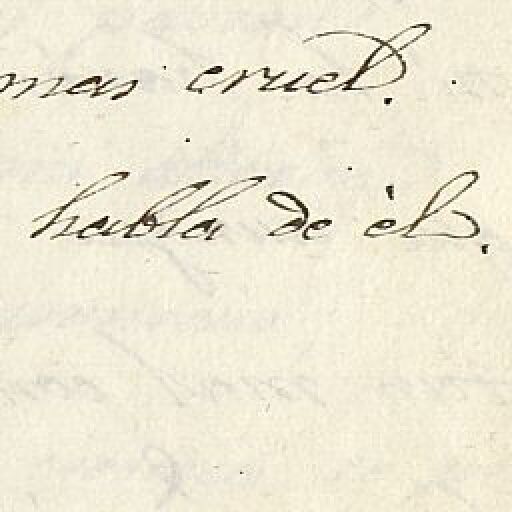 mas cruel.
habla de èl.